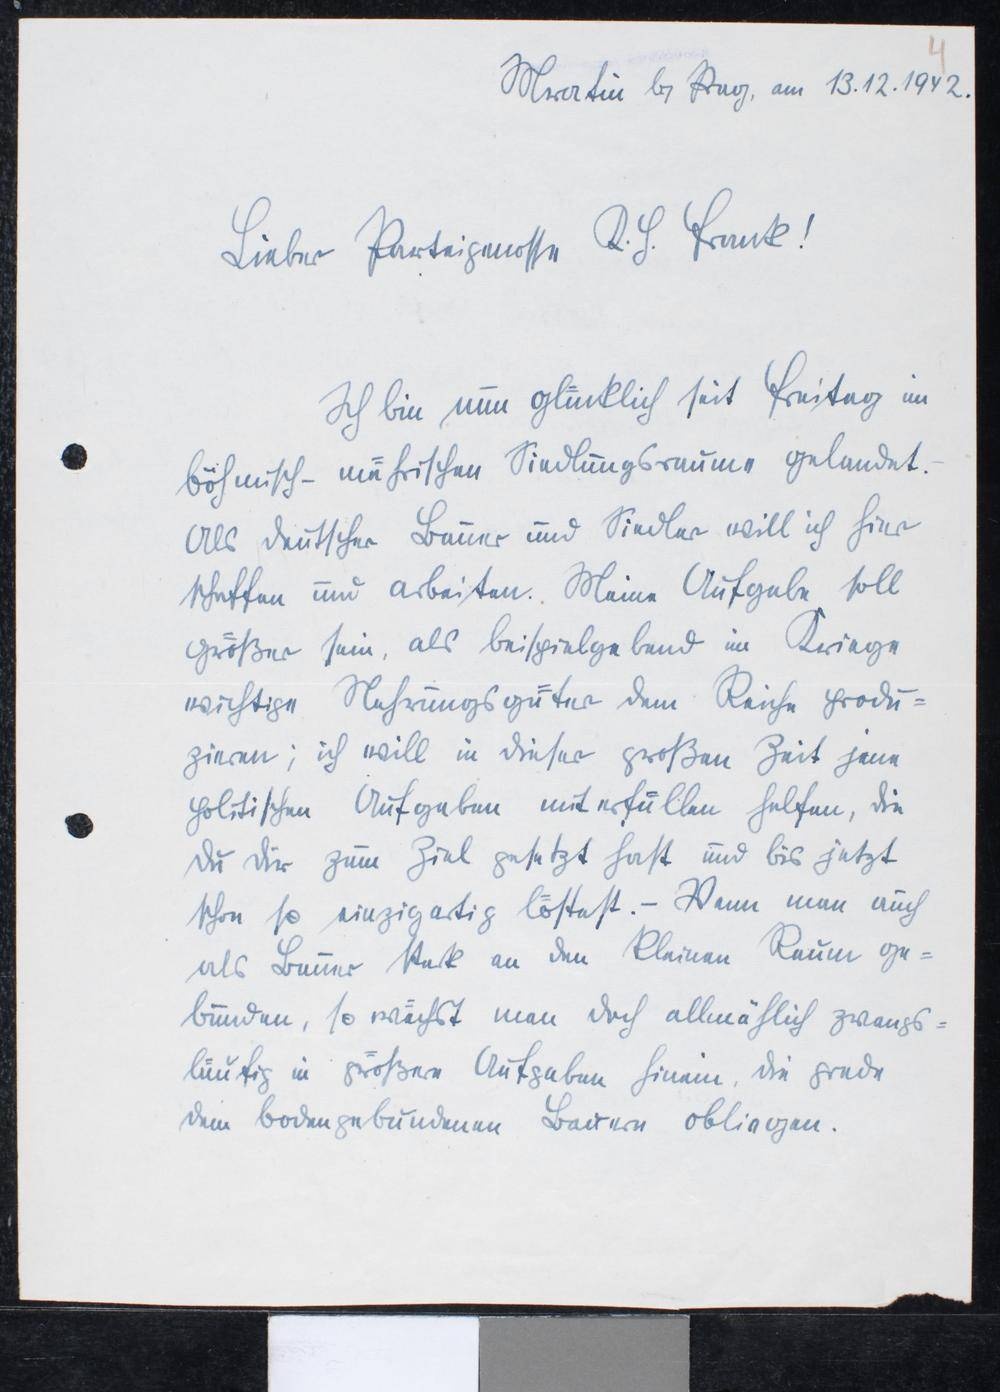 4
Mratin b/ Prag, am 13.12.1942.
Lieber Parteigenosse K. H. Frank!
Ich bin nun glücklich seit Freitag im
böhmisch-mährischen Siedlungsraume gelandet.-
Als deutscher Bauer und Siedler will ich hier
schaffen und arbeiten. Meine Aufgabe soll
größer sein, als beispielgebend im Kriege
wichtige Nahrungsgüter dem Reiche produ=
zieren; ich will in dieser großen Zeit jene
politischen Aufgaben miterfüllen helfen, die
Du Dir zum Ziel gesetzt hast und bis jetzt
schon so einzigartig löstest.- Wenn man auch
als Bauer stark an den kleinen Raum ge=
bunden, so wächst man doch allmählich zwangs=
läufig in größere Aufgaben hinein, die grade
dem bodengebundenen Bauern obliegen.